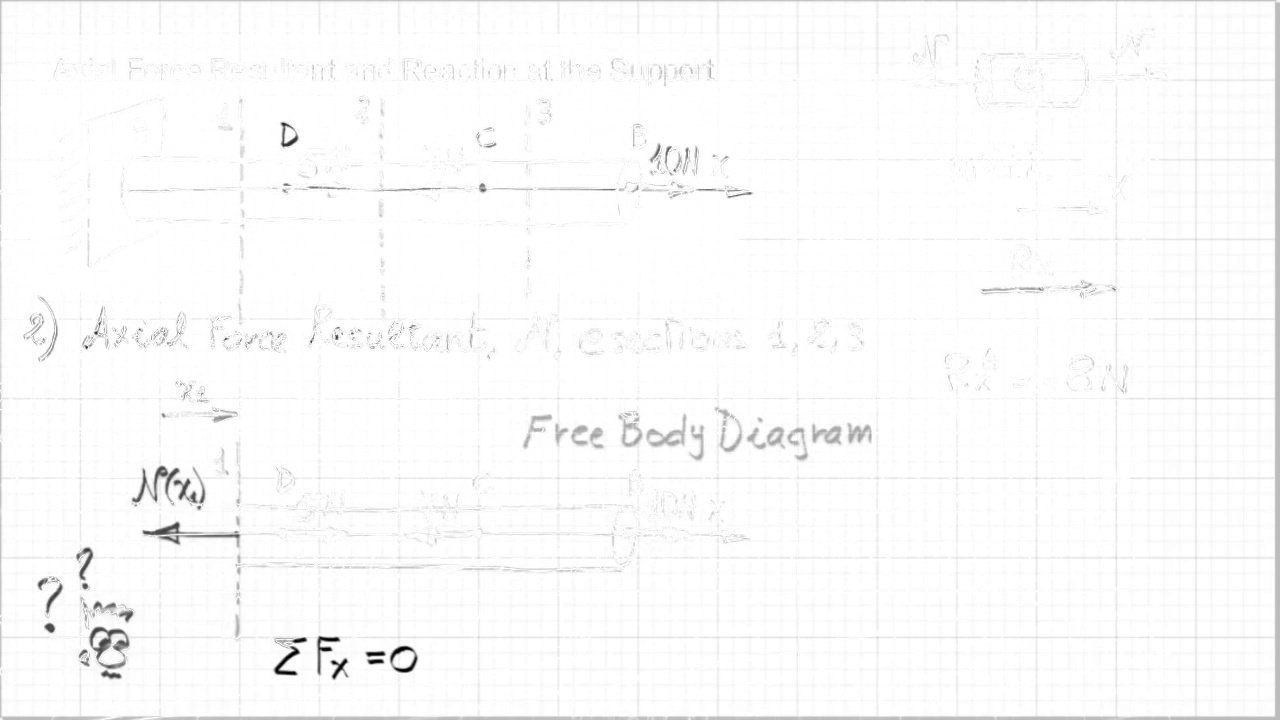 Axial Force Resultant and Reaction at the Support
N N
1 2 3
D C B
5N 10N x
x
Rx
2) Axial Force Resultant, N, @ sections 1, 2, 3
Rx = -8N
x1
Free Body Diagram
1
N(x1) D C B
5N 10N x
? ?
ΣFx = 0